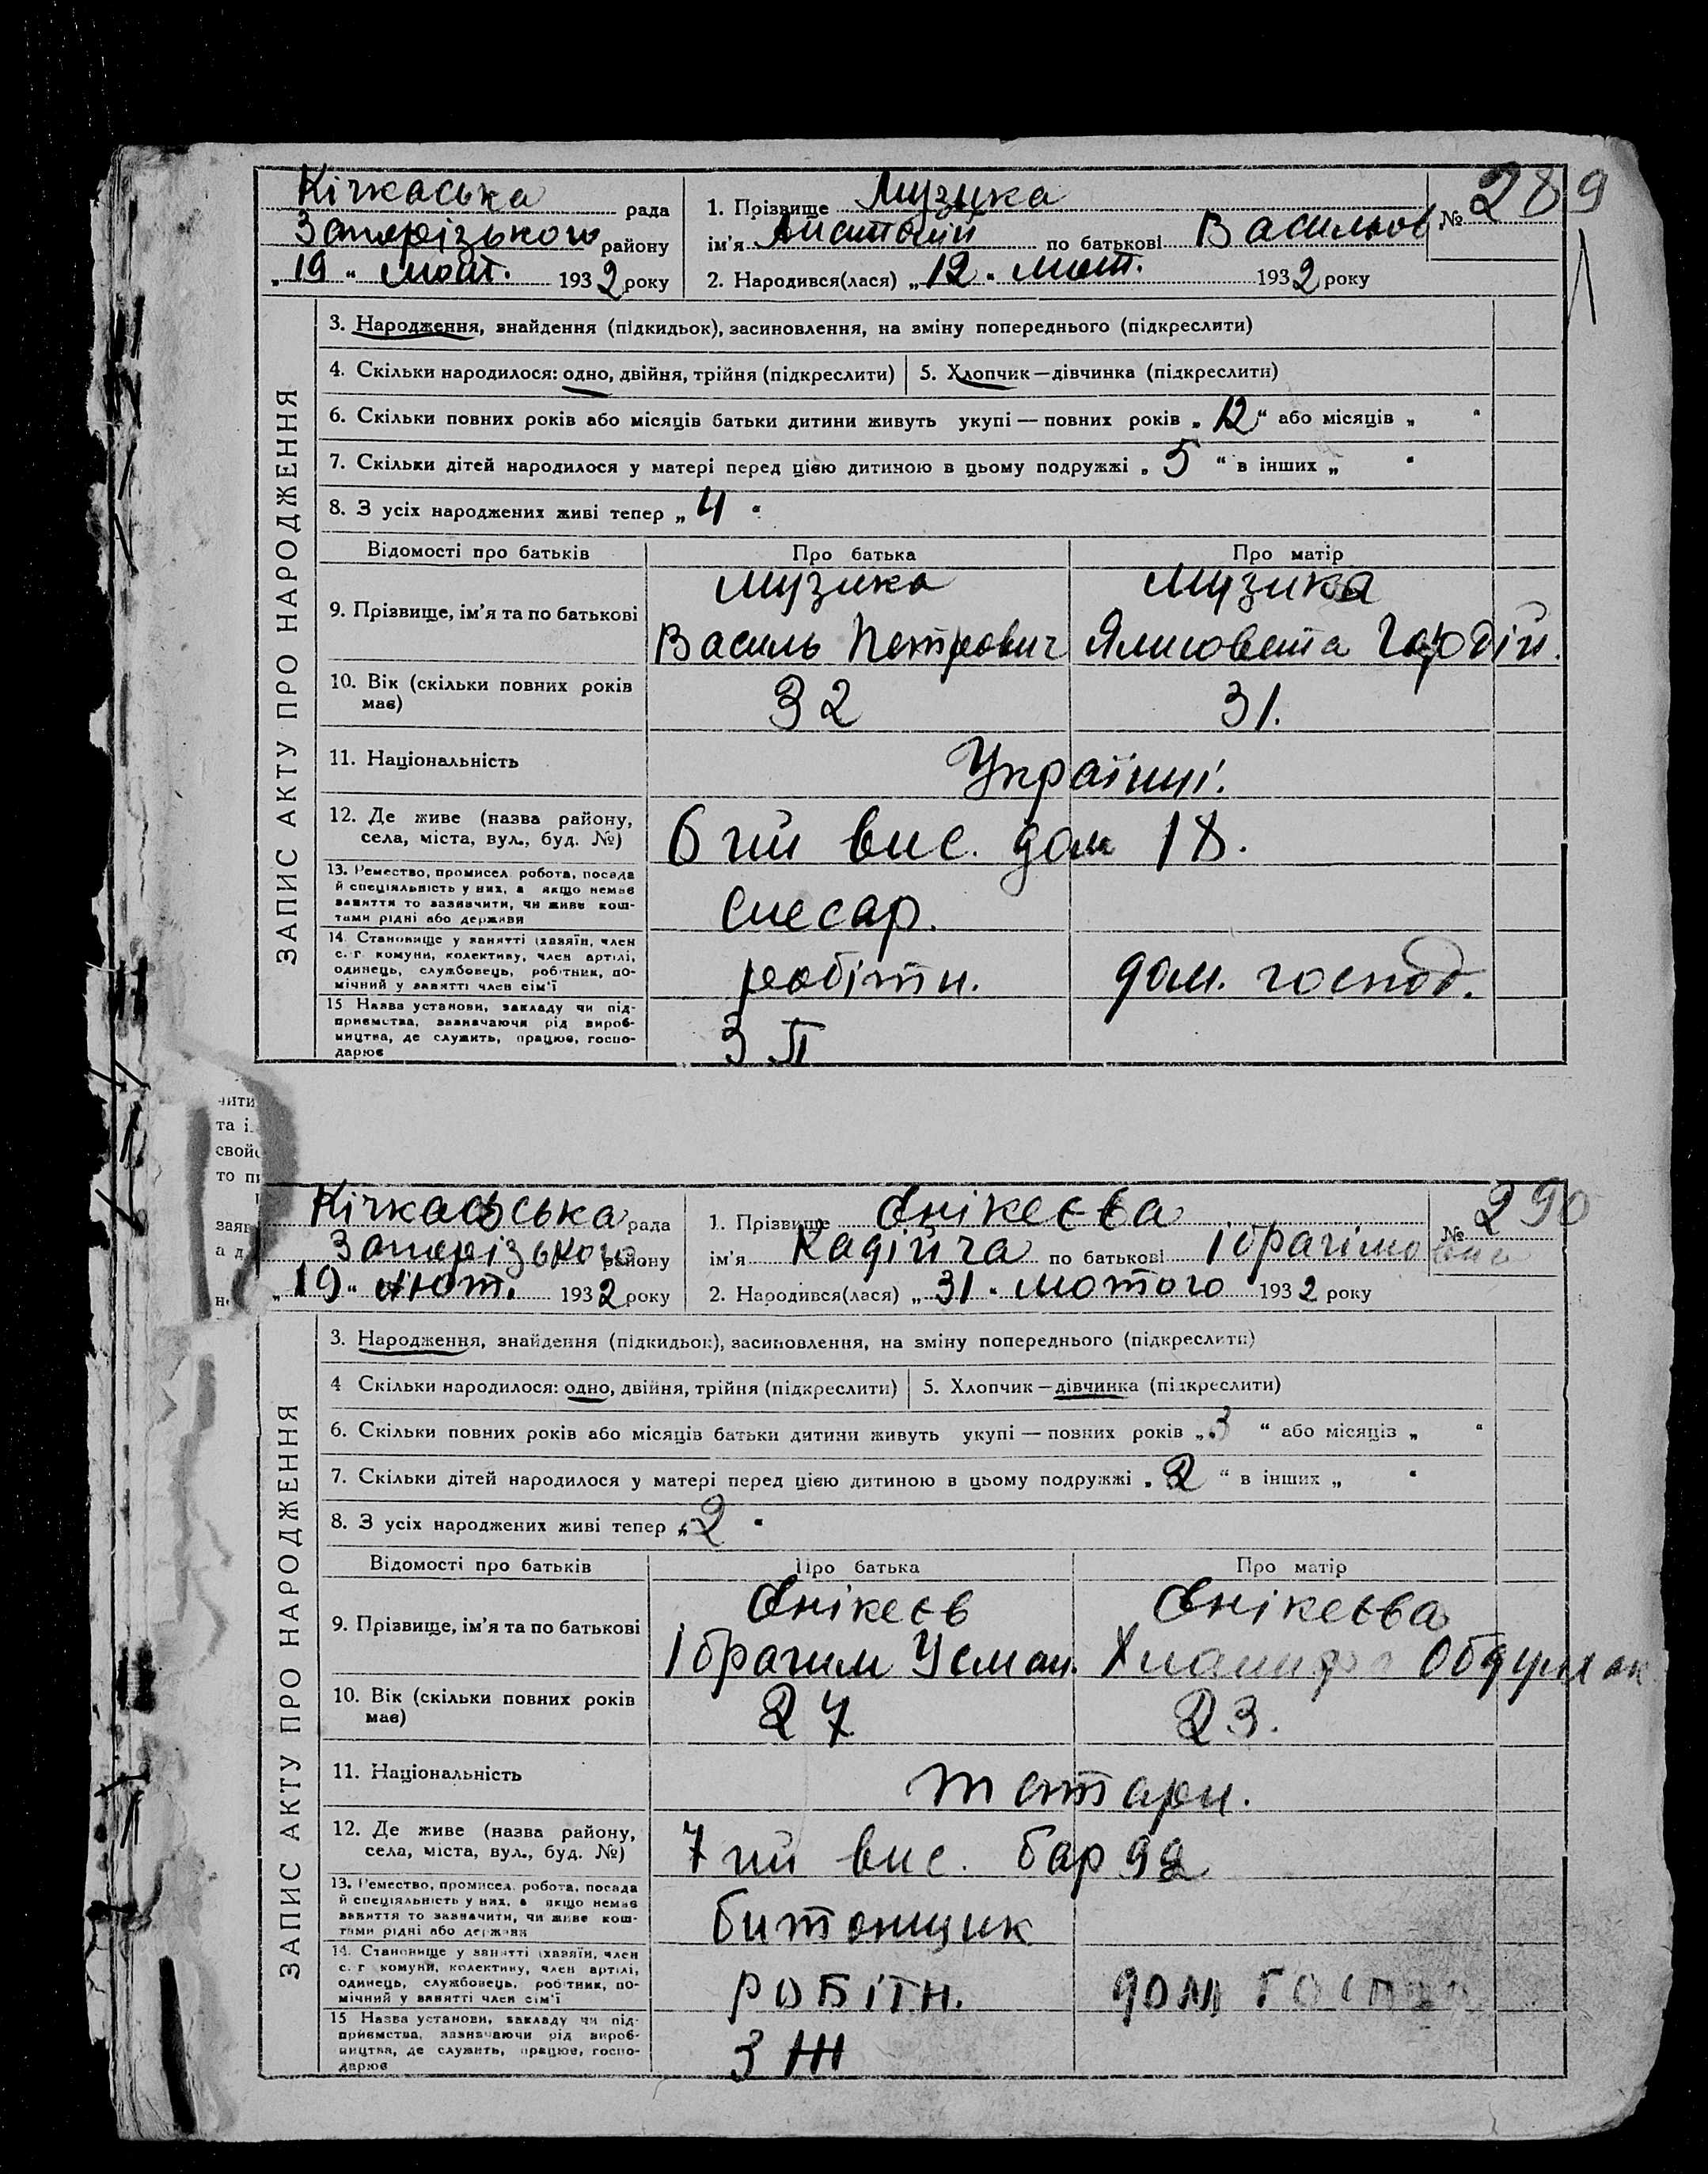 Кічкаська рада
Запорізького району
„19“ лют. 1932 року
1. Прізвище Музика
ім’я Анатолій по батькові Васильов
2. Народився(лася) „12“ лют. 1932 року
№ 289
ЗАПИС АКТУ ПРО НАРОДЖЕННЯ
3. Народження, знайдення (підкидьок), засиновлення, на зміну попереднього (підкреслити)
4. Скільки народилося: одно, двійня, трійня (підкреслити) 5. Хлопчик—дівчинка (підкреслити)
6. Скільки повних років або місяців батьки дитини живуть укупі — повних років „12“ або місяців „ “
7. Скільки дітей народилося у матері перед цією дитиною в цьому подружжі „5“ в інших „ “
8. З усіх народжених живі тепер „4“
Відомості про батьків Про батька Про матір
9. Прізвище, ім’я та по батькові
Музика Музика
Василь Петрович Ялисовета Гордій.
10. Вік (скільки повних років має) 32 31.
11. Національність Українці.
12. Де живе (назва району, села, міста, вул., буд. №) 6 ий вис. дом 18.
13. Ремество, промисел. робота, посада
й спеціяльність у них, а якщо немає
заняття то зазначити, чи живе кош-
тами рідні або держави
слесар.
14. Становище у занятті (хазяїн, член
с.-г. комуни, колективу, член артілі,
одинець, службовець, робітник, по-
мічний у занятті член сім’ї
робітн. дом. господ.
15 Назва установи, закладу чи під-
приємства, зазначаючи рід вироб-
ництва, де служить, працює, госпо-
дарює
З П
чити
та і
свой
то
заяв
а д
Кічкаська рада
Запорізького району
„19“ лют. 1932 року
1. Прізвище Єнікеєва
ім’я Кадійча по батькові Ібрагімовна
2. Народився(лася) „31“ лютого 1932 року
№ 290
ЗАПИС АКТУ ПРО НАРОДЖЕННЯ
3. Народження, знайдення (підкидьок), засиновлення, на зміну попереднього (підкреслити)
4 Скільки народилося: одно, двійня, трійня (підкреслити) 5. Хлопчик—дівчинка (підкреслити)
6. Скільки повних років або місяців батьки дитини живуть укупі — повних років „3“ або місяців „ “
7. Скільки дітей народилося у матері перед цією дитиною в цьому подружжі „2“ в інших „ “
8. З усіх народжених живі тепер „2“
Відомості про батьків Про батька Про матір
9. Прізвище, ім’я та по батькові
Єнікеєв Єнікеєва
Ібрагим Усман.
10. Вік (скільки повних років має) 27 23.
11. Національність татари.
12. Де живе (назва району, села, міста, вул., буд. №) 7 ий вис. бар 92
13. Ремество, промисел. робота, посада
й спеціяльність у них, а якщо немає
заняття то зазначити, чи живе кош-
тами рідні або держави
битонщик
14. Становище у занятті (хазяїн, член
с.-г. комуни, колективу, член артілі,
одинець, службовець, робітник, по-
мічний у занятті член сім’ї
робітн. дом госпо
15 Назва установи, закладу чи під-
приємства, зазначаючи рід вироб-
ництва, де служить, працює, госпо-
дарює
З Ж